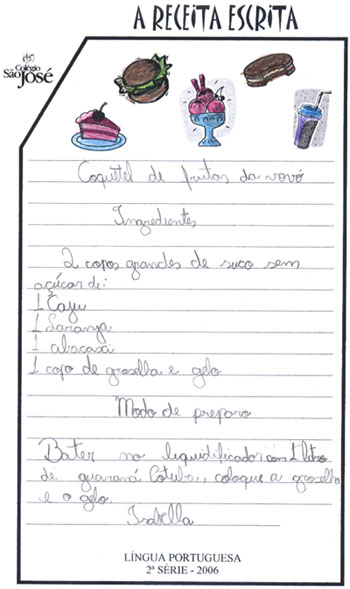 A RECEITA ESCRITA
Colégio
São José
Coquetel de frutas da vovó
Ingredientes
2 copos grandes de suco sem
açúcar de:
1 Caju
1 Laranja
1 abacaxi
1 copo de groselha e gelo
Modo de preparo
Bater no liquidificador com 1 litro
de guaraná Cotuba, coloque a groselha
e o gelo.
Isabella
LÍNGUA PORTUGUESA
2ª SÉRIE - 2006